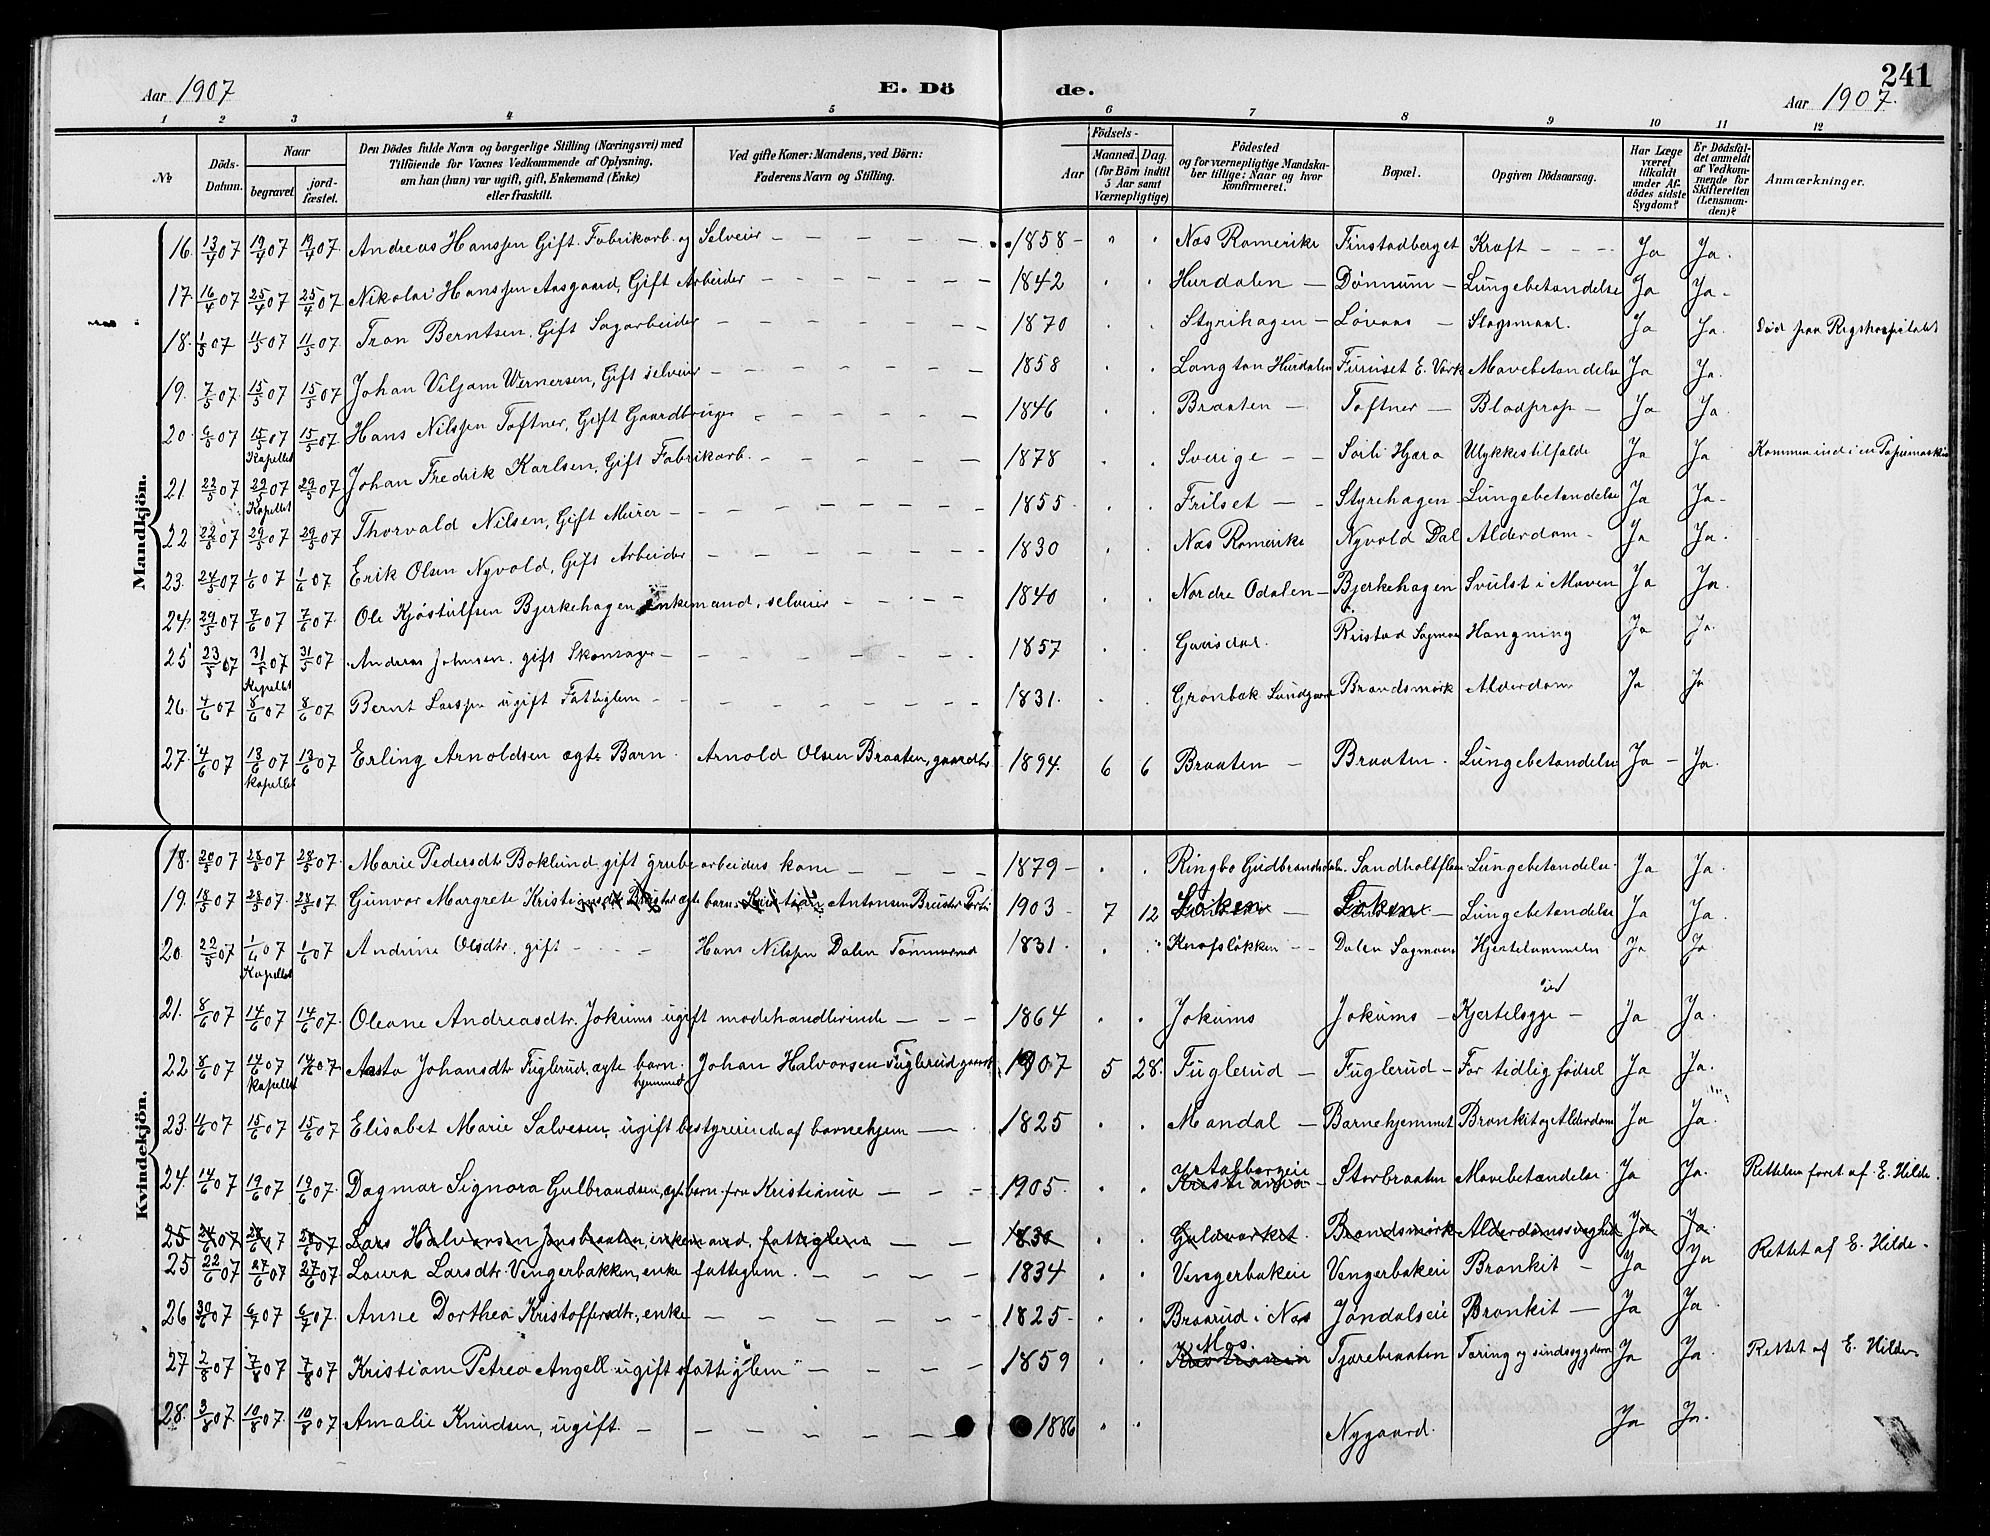 Aar 1907
E. Dö de.
241
Aar 1907.
1 2 3 4 5 6 7 8 9 10 11 12
№
Döds-Datum.
Naar
begravet.
jord-fæstet.
Den Dödes fulde Navn og borgerlige Stilling (Næringsvei) med
Tilföiende for Voxnes Vedkommende af Oplysning,
om han (hun) var ugift, gift, Enkemand (Enke)
eller fraskilt.
Ved gifte Koner: Mandens, ved Börn:
Faderens Navn og Stilling.
Födsels-
Aar
Maaned. Dag.
(for Börn indtil
5 Aar samt
Værnepligtige)
Födested
og for værnepligtige Mandska-
ber tillige: Naar og hvor
konfirmeret.
Bopæl.
Opgiven Dödsaarsag.
Har Læge
været
tilkaldt
under Af-
dödes sidste
Sygdom?
Er Dödsfal-
det anmeldt
af Vedkom-
mende for
Skifteretten
(Lensman-
den)?
Anmærkninger.
Mandkjön.
16. 13/4 07 19/4 07 19/4 07. Andreas Hanssen Gift. Fabrikarb. og Selveier 1858 Næs Romerike Finstadberget Kræft Ja Ja.
17. 16/4 07 25/4 07 25/4 07 Nikolai Hanssen Aasgaard, Gift Arbeider 1842 Hurdalen Dønnum Lungebetændelse Ja Ja
18. 1/5 07 11/5 07 11/5 07. Tron Berntsen, Gift Sagarbeider 1870 Styrihagen Løvaas Slagsmaal. Ja Ja. Død paa Rigshospitalet
19. 7/5 07. 15/5 07 15/5 07 Johan Viljam Wernersen, Gift selveier 1858 Langton Hurdalen Furuset E. Værk Mavebetændelse Ja Ja.
20. 07 15/5 07 15/5 07 Hans Nilssen Toftner, Gift Gaardbruger 1846 Braaten Toftner Blodprop Ja Ja.
Kapellet
21. 22/5 07 29/5 07 29/5 07 Johan Fredrik Karlsen, Gift Fabrikarb. 1878 Sverige Soili Hjæra Ulykkestilfælde Ja Ja Kommen ind i en Papirmaskin
Kapellet
22 07 29/5 07 29/5 07 Thorvald Nilsen, Gift Murer 1855 Frilset Styrehagen Lungebetændelse Ja Ja
23. 24/5 07 1/6 07 1/6 07 Erik Olsen Nyvold, Gift Arbeider 1830 Næs Romerike Nyvold Dal Alderdom Ja Ja.
24. 29/5 07 7/6 07 7/6 07. Ole Kjøstulfsen Bjerkehagen Enkemand, selveier 1840 Nordre Odalen Bjerkehagen Svulst i Maven Ja Ja.
25 23/5 07 31/5 07 31/5 07 Andreas Johnsen. gift Skomager 1857 Gausdal. Ristad Sagmoen Hængning Ja Ja.
Kapellet
26. 4/6 07 8/6 07 8/6 07 Bernt Larsen ugift Fattiglem 1831. Grønbæk Lundgaard Brandsmørk Alderdom Ja Ja
27. 4/6 07 13/6 07 13/6 07 Erling Arnoldsen ægte Barn. Arnold Olsen Braaten, gaardbr 1894. 6 6 Braaten Braaten. Lungebetændelse Ja Ja.
Kapellet
Kvindekjön.
18. 20/5 07 28/5 07 28/5 07. Marie Pedersdtr Boklund. gift grubearbeiders kone 1879 Ringbo Gudbrandsdalen. Sandholtflaen Lungebetændelse. Ja Ja.
19. 18/5 07 28/5 07. 28/5 07. Gunvor Margrete Kristiansdtr ægte barn. Antonsen 1903 7 12 Løken Løken Lungebetændelse Ja Ja.
20. 22/5 07 1/6 07 1/6 07 Andrine Olsdtr. gift Hans Nilssen Dalen Tømmermd 1831. Knofsløkken Dalen Sagmoen Hjertelammelse Ja Ja
Kapellet
21. 8/6 07 14/6 07 14/6 07. Oleane Andreasdtr. Jokums ugift modehandlerinde 1864 Jokums Jokums Kjertelsyge Ja Ja.
22 8/6 07 14/6 07 14/6 07. Aasta Johansdtr Fuglerud, ægte barn. Johan Halvorsen Fuglerud gaardb 1907 5 28. Fuglerud Fuglerud For tidlig fødsel Ja Ja.
Kapellet hjemmed
23. 07 15/6 07 15/6 07 Elisabet Marie Salvesen, ugift bestyrerinde af barnehjem 1825 Mandal Barnehjemmet Bronkit og Alderdom Ja Ja.
24. 14/6 07 19/6 07 19/6 07. Dagmar Signora Gulbrandsen, ægte barn fra Kristiania 1905. Kristiania Storbraaten Mavebetændelse Ja Ja. Rettelsen foret af E. Hilde.
25 24/6 07 07 07 Lars Halvorsen Jonsbraaten, enkemand, fattiglem 1830 Guldværket. Brandsmørk Alderdomssvaghed Ja Ja.
25 22/6 07 27/6 07 27/6 07 Laura Larsdtr. Vengerbakken, enke fattiglem. 1834 Vengerbakeie Vengerbakeie Bronkit Ja Ja Rettet af E. Hilde.
26 30/6 07 6/7 07 6/7 07. Anne Dorthea Kristoffersdtr, enke 1825. Braarud i Næs Jøndalseie Bronkit Ja Ja.
27 2/8 07 7/8 07 7/8 07. Kristiane Petrea Angell ugift fattiglem 1859 Moss. Kristiania Tjærebraaten Tæring og sindssygdom Ja Ja. Rettet af E. Hilde.
28. 3/8 07 10/8 07. 10/8 07. Amalie Knudsen, ugift. 1886 Nygaard. Ja Ja.